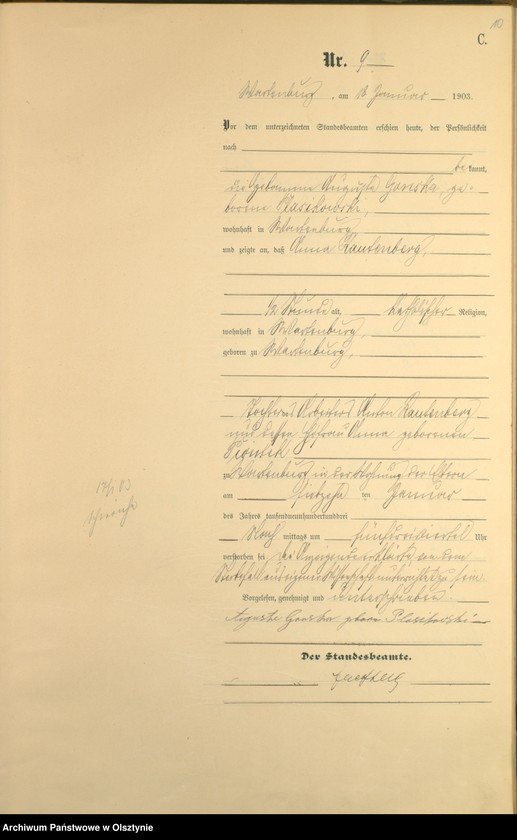 10
C.
Nr. 9
Wartenburg, am 18 Januar 1903.
Vor dem unterzeichneten Standesbeamten erschien heute, der Persönlichkeit
nach
be kannt,
die Hebamme Auguste Gonska, ge-
borene
wohnhaft in Wartenburg,
und zeigte an, daß Anna Rautenberg,
1/2 Stunde alt, katholischer Religion,
wohnhaft in Wartenburg,
geboren zu Wartenburg,
Tochter des Arbeiters Anton Rautenberg
und dessen Ehefrau Anna geborenen
zu Wartenburg in der Wohnung der Eltern
am siebzehn ten Januar
des Jahres tausendneunhundertunddrei
Nach mittags um fünfdreiviertel Uhr
verstorben sei. Die Anzeigende erklärte von dem
Sterbefall aus eigener Wissenschaft unterrichtet zu sein.
Vorgelesen, genehmigt und unterschrieben
Auguste Gonska geborne
Der Standesbeamte.
Archiwum Państwowe w Olsztynie